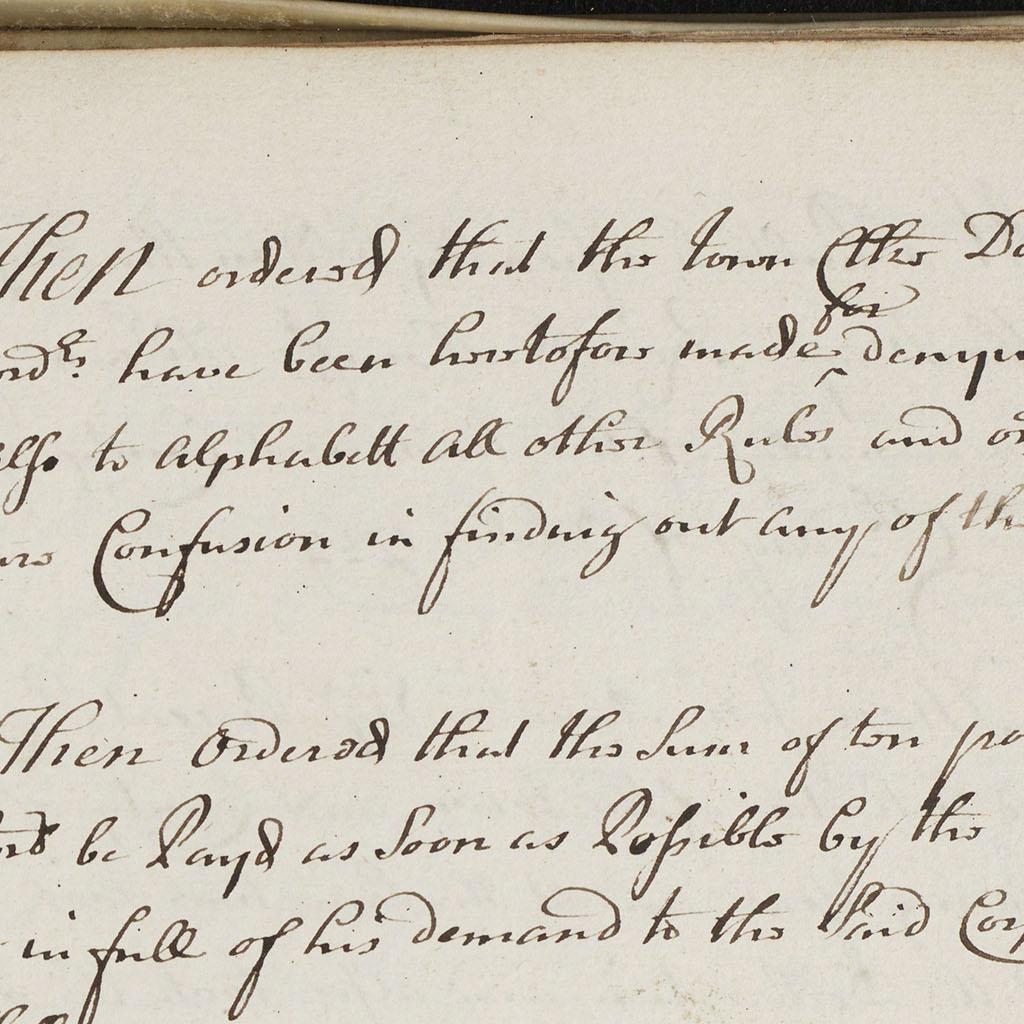 Then ordered that the town Clke
have been heretofore made for
to alphabett all other Rules and
Confusion in finding out any of
Then Ordered that the Sum of ten
be Payd as Soon as Possible by the
in full of his demand to the Said